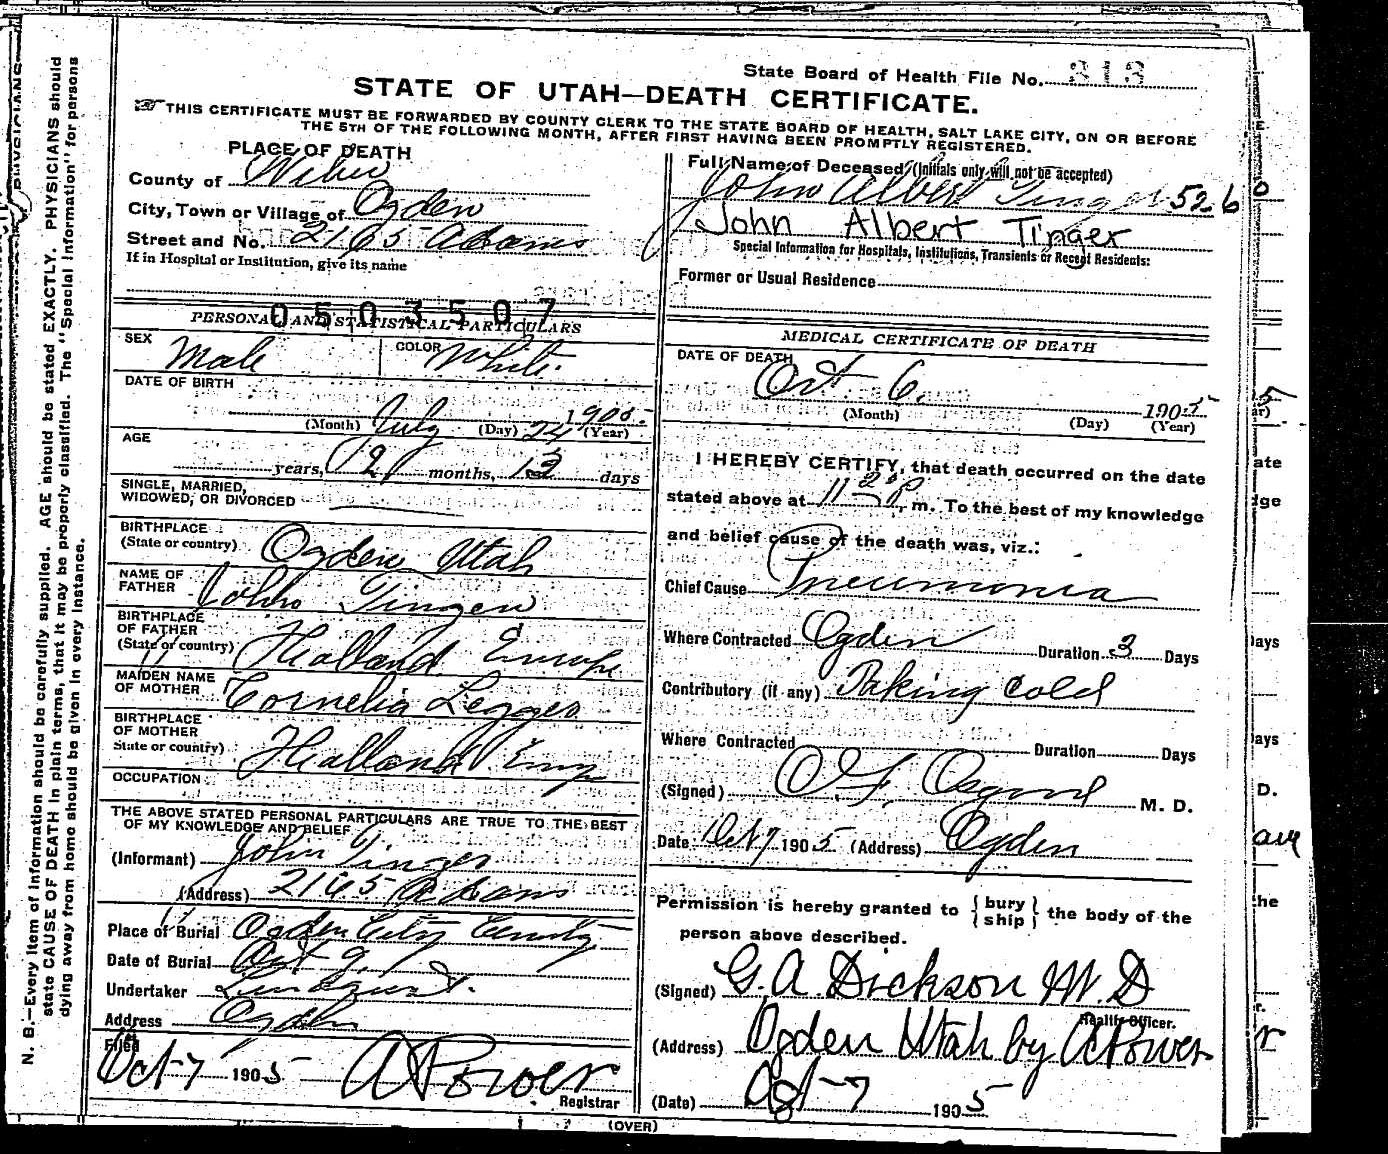 N. B.—Every item of information should be carefully supplied. AGE should be stated EXACTLY. PHYSICIANS should
state CAUSE OF DEATH in plain terms, that it may be properly classified. The "Special Information" for persons
dying away from home should be given in every instance.
State Board of Health File No. 313
STATE OF UTAH—DEATH CERTIFICATE.
THIS CERTIFICATE MUST BE FORWARDED BY COUNTY CLERK TO THE STATE BOARD OF HEALTH, SALT LAKE CITY, ON OR BEFORE
THE 5TH OF THE FOLLOWING MONTH, AFTER FIRST HAVING BEEN PROMPTLY REGISTERED.
PLACE OF DEATH
County of Weber
City, Town or Village of Ogden
Street and No. 2165 Adams
If in Hospital or Institution, give its name
Full Name of Deceased (Initials only will not be accepted)
John Albert Tinger 526
John Albert Tinger
Special Information for Hospitals, Institutions, Transients or Recent Residents:
Former or Usual Residence
0503507
PERSONAL AND STATISTICAL PARTICULARS
SEX Male COLOR White
DATE OF BIRTH
July 24 1905
(Month) (Day) (Year)
AGE
years, 2 months, 13 days
SINGLE, MARRIED,
WIDOWED, OR DIVORCED
BIRTHPLACE
(State or country) Ogden Utah
NAME OF
FATHER John Tinger
BIRTHPLACE
OF FATHER
(State or country) Holland Europe
MAIDEN NAME
OF MOTHER Cornelia
BIRTHPLACE
OF MOTHER
State or country) Holland Eur
OCCUPATION
THE ABOVE STATED PERSONAL PARTICULARS ARE TRUE TO THE BEST
OF MY KNOWLEDGE AND BELIEF
(Informant) John Tinger
(Address) 2165 Adams
Place of Burial Ogden City
Date of Burial Oct 9
Undertaker Lindquist
Address Ogden
Filed
Oct 7 1905 A Power
Registrar
MEDICAL CERTIFICATE OF DEATH
DATE OF DEATH
Oct 6. 1905
(Month) (Day) (Year)
I HEREBY CERTIFY, that death occurred on the date
stated above at 11 P m. To the best of my knowledge
and belief cause of the death was, viz.:
Chief Cause Pneumonia
Where Contracted Ogden Duration 3 Days
Contributory (if any) Taking cold
Where Contracted Duration Days
(Signed) O. F. Osgood M. D.
Date Oct 7 1905 (Address) Ogden
Permission is hereby granted to { bury / ship } the body of the
person above described.
(Signed) G. A. Dickson M. D
Health Officer.
(Address) Ogden Utah by A Power
(Date) Oct 7 1905
(OVER)